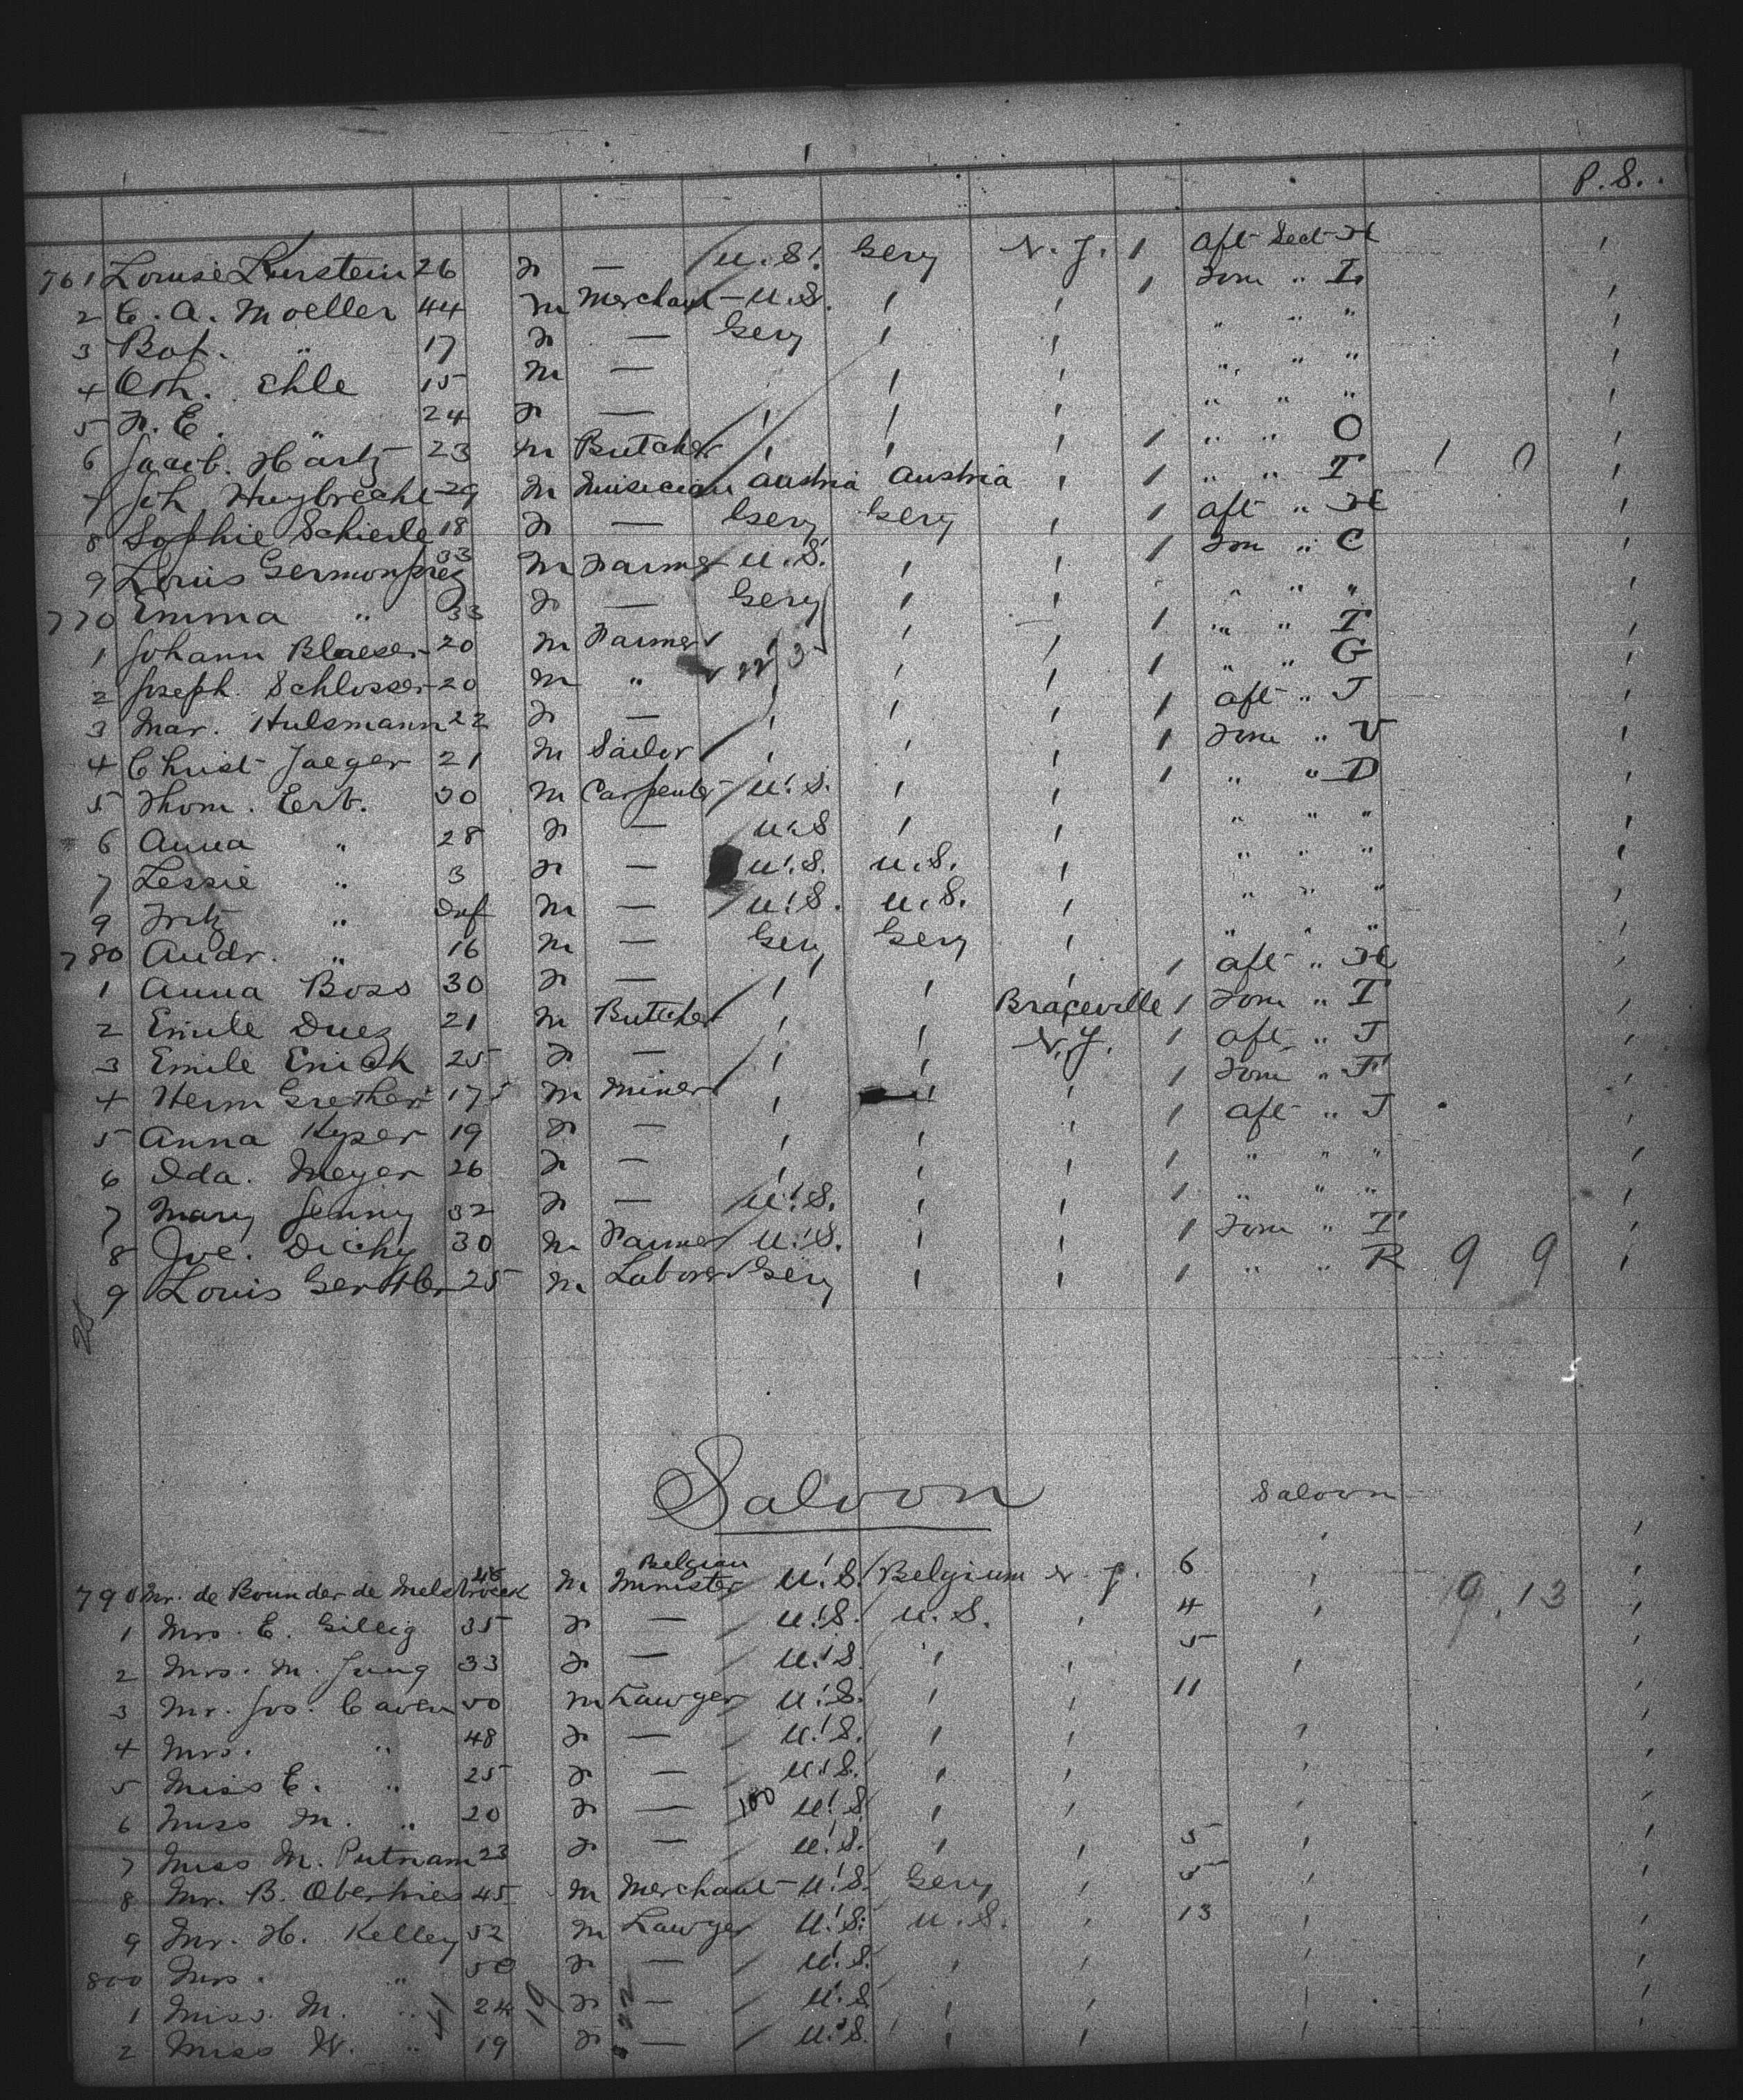 P.S.
761 Louise Lurstein 26 F — U.S. Gery N.Y. 1 Aft Sect H
2 C. A. Moeller 44 M Merchant U.S. " " 1 Forw " I
3 Bap. " 17 F — Gery " " " " "
4 Oth. Ehle 15 M — " " " " "
5 F. E. " 24 F — " " " " " "
6 Jacob. Hartz 23 M Butcher " " " 1 " " O
7 Joh. Huybrecht 29 M Musician Austria Austria " 1 " " T
8 Sophie Schierle 18 F — Gery Gery " 1 Aft " H
9 Louis Germonprez 33 M Farmer U.S. " " 1 Forw " C
770 Emma " 33 F — Gery " " " " "
1 Johann Blaeser 20 M Farmer " " " 1 " " T
2 Joseph. Schlosser 20 M " " " 1 " " G
3 Mar. Hulsmann 22 F — " " " 1 Aft " J
4 Christ Jaeger 21 M Sailor " " " 1 Forw " V
5 Thom. Erb. 30 M Carpenter U.S. " " 1 " " D
6 Anna " 28 F — U.S. " " " " "
7 Lessie " 3 F — U.S. U.S. " " " "
9 Fritz " Inf M — U.S. U.S. " " " "
780 Andr. " 16 M — Gery Gery " " " "
1 Anna Boss 30 F — " " " 1 Aft " H
2 Emile Duez 21 M Butcher " " Braceville 1 Forw " T
3 Emile Enick 25 F — " " N.Y. 1 Aft " J
4 Herm Grether 17 M Miner " " " 1 Forw " F
5 Anna Kyser 19 F — " " " 1 Aft " J
6 Ida. Meyer 26 F — " " " 1 " " "
7 Mary Jenny 32 F — U.S. " " 1 " " "
8 Joe. Dichy 30 M Farmer U.S. " " 1 Forw " T
9 Louis Gerttler 25 M Laborer Gery " " 1 " " R 9 9
25
Saloon Saloon
790 Mr. de Bounder de Melsbroeck 46 M Belgian Minister U.S. Belgium N.Y. 6
9.13
1 Mrs. E. Gillig 35 F — U.S. U.S. " 4
2 Mrs. M. Jung 33 F — U.S. " " 5
3 Mr. Jos. Caven 50 M Lawyer U.S. " " 11
4 Mrs. " 48 F — U.S. " "
5 Miss E. " 25 F — U.S. " "
6 Miss M. " 20 F — 100 U.S. " "
7 Miss M. Putnam 23 F — U.S. " " 5
8 Mr. B. Oberhies 45 M Merchant U.S. Gery " 5
9 Mr. H. Kelley 52 M Lawyer U.S. U.S. " 13
800 Mrs. " 50 F — U.S. " "
1 Miss. M. " 24 F — U.S. " "
2 Miss N. " 19 F — U.S. " "
41 19 22